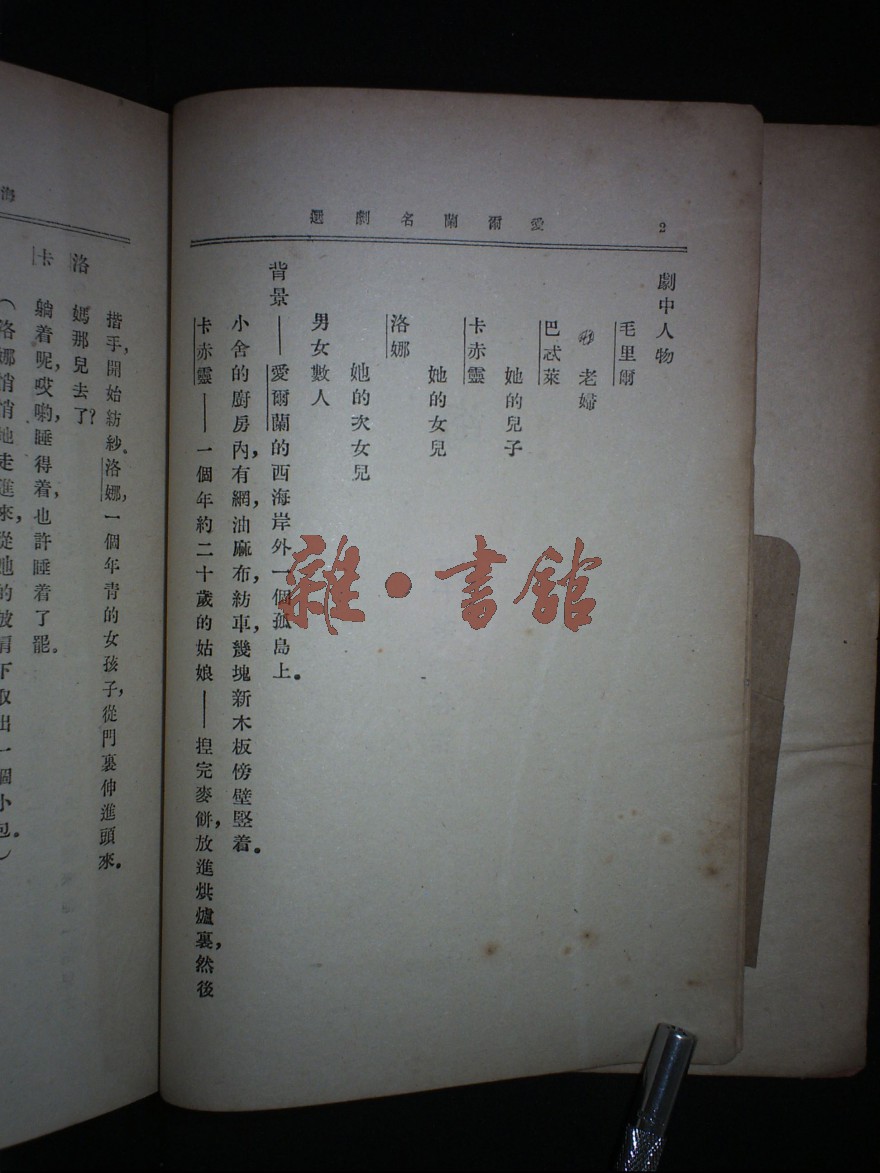 2 愛爾蘭名劇選
劇中人物
毛里爾
老婦
巴忒萊
她的兒子
卡赤靈
她的女兒
洛娜
她的次女兒
男女數人
背景——愛爾蘭的西海岸外一個孤島上。
小舍的廚房內，有網，油麻布，紡車，幾塊新木板傍壁竪着。
卡赤靈——一個年約二十歲的姑娘——揑完麥餅，放進烘爐裏，然後
海
揩手，開始紡紗。洛娜，一個年青的女孩子，從門裏伸進頭來。
洛 媽那兒去了？
卡 躺着呢，哎喲，睡得着，也許睡着了罷。
（洛娜悄悄地走進來，從她的披肩下取出一個小包。）
雜·書館